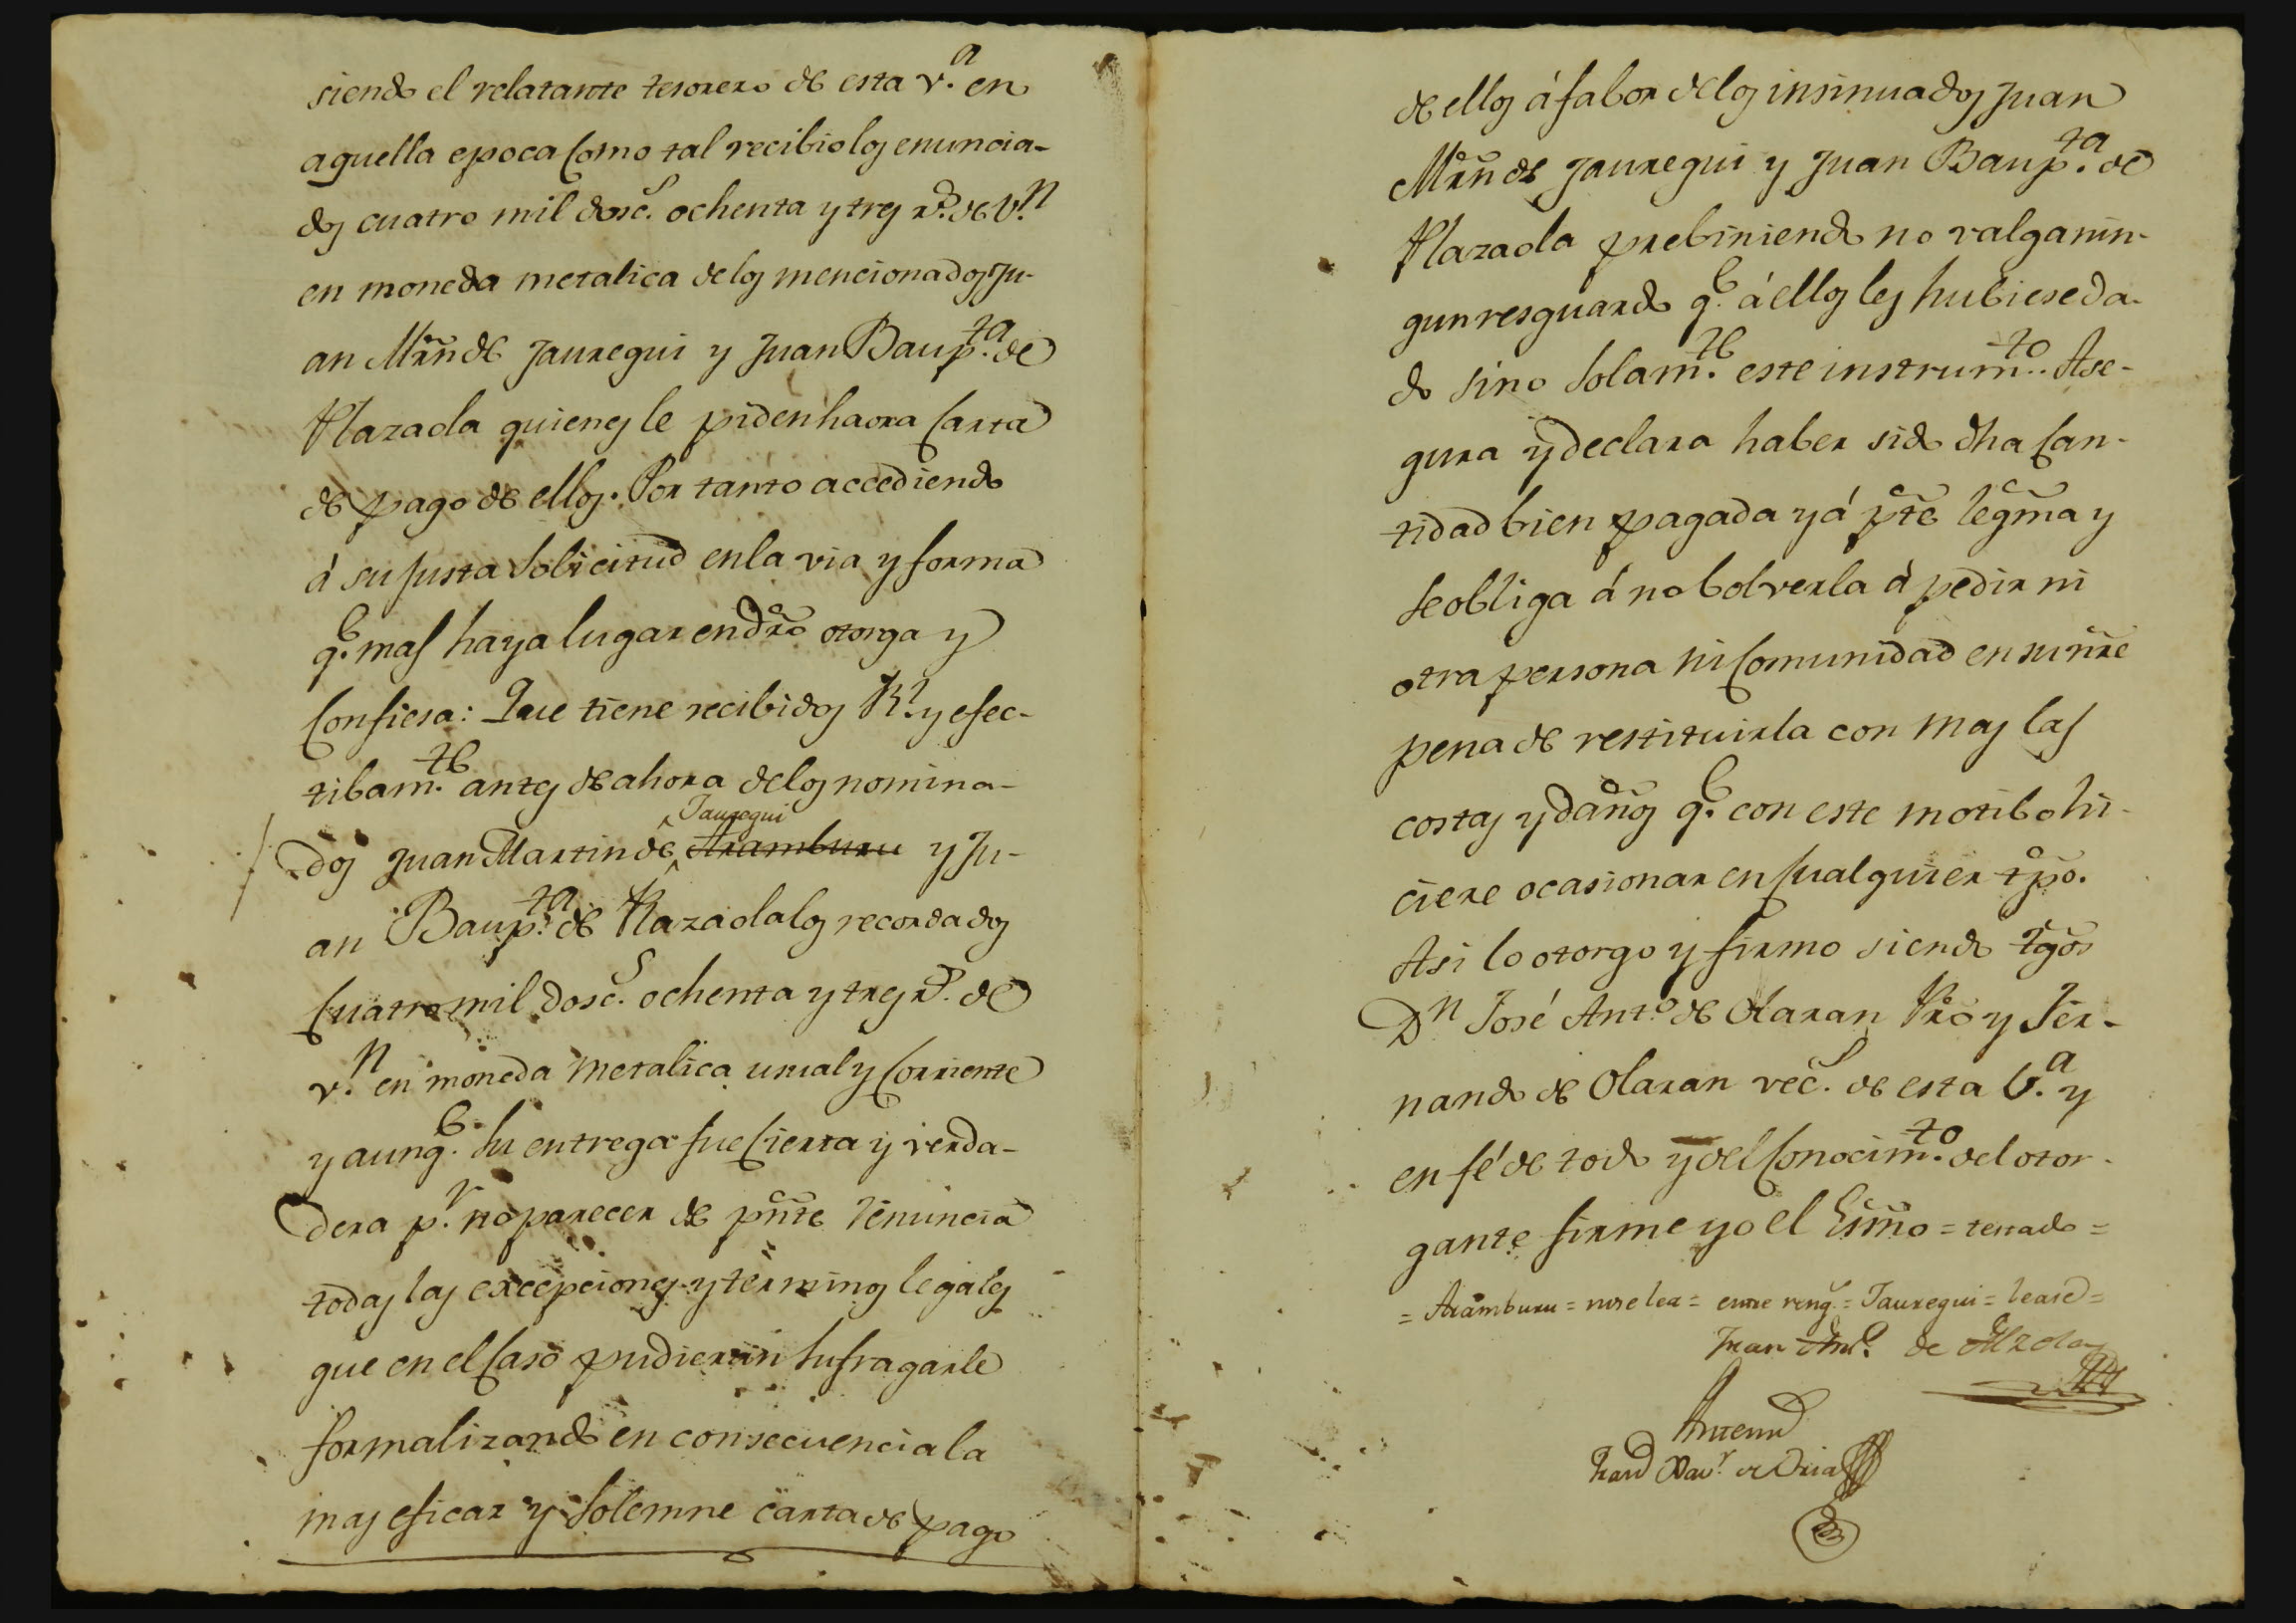 siendo el relatante tesorero de esta v.ª en
aquella epoca como tal recibio los enuncia-
dos cuatro mil dosc.s ochenta y tres r.s de v.n
en moneda metalica de los mencionados Ju-
an Mrñ de Jauregui y Juan Baup.ta de
Plazaola quienes le piden haora Carta
de pago de ellos. Por tanto accediendo
á su justa Solicitud en la via y forma
q.e mas haya lugar en dro otorga y
Confiesa: Que tiene recibidos R.l y efec-
tibam.te antes de ahora de los nomina-
dos Juan Martin de Jauregui Aramburu y Ju-
an Baup.ta de Plazaola los recordados
Cuatro mil dosc.s ochenta y tres r.s de
v.n en moneda metalica usual y Corriente
y aunq.e su entrega fue Cierta y verda-
dera p.r no parecer de pñte renuncia
todas las excepciones y terminos legales
que en el Caso pudieran Sufragarle
formalizando en consecuencia la
mas eficaz y Solemne carta de pago
de ellos á fabor de los insinuados Juan
Mrñ de Jauregui y Juan Baup.ta de
Plazaola prebiniendo no valga nin-
gun resguardo q.e á ellos les hubiese da-
do sino Solam.te este instrum.to. Ase-
gura y declara haber sido dha Can-
tidad bien pagada y á pte legma y
Se obliga á no bolverla á pedir ni
otra persona ni Comunidad en su nre
pena de restituirla con mas las
costas y daños q.e con este motibo hi-
ciere ocasionar en Cualquier tpo.
Asi lo otorgo y firmo siendo tgos
Dn José Ant.o de Olaran Pro y Fer-
nando de Olaran vec.s de esta V.ª y
en fé de todo y del Conocim.to del otor-
gante firme yo el Esño = testado =
= Aramburu = no se lea = entre reng.s = Jauregui = lease =
Juan Ant.o de Alzola
Antemi
Xav.r de Oria